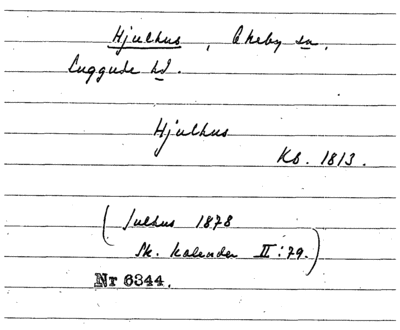 Hjulhus, Ekeby sn,
Luggude hd.
Hjulhus
Kb. 1813.
(Julhus 1878
Sk. Kalender II:79.)
Nr 6344.